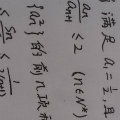 满足 a₁=1/2, 且
aₙ/aₙ₊₁ ≤ 2 (n∈N*)
{aₙ²} 的前 n 项和
≤ Sₙ/n ≤ 1/2(n+1)